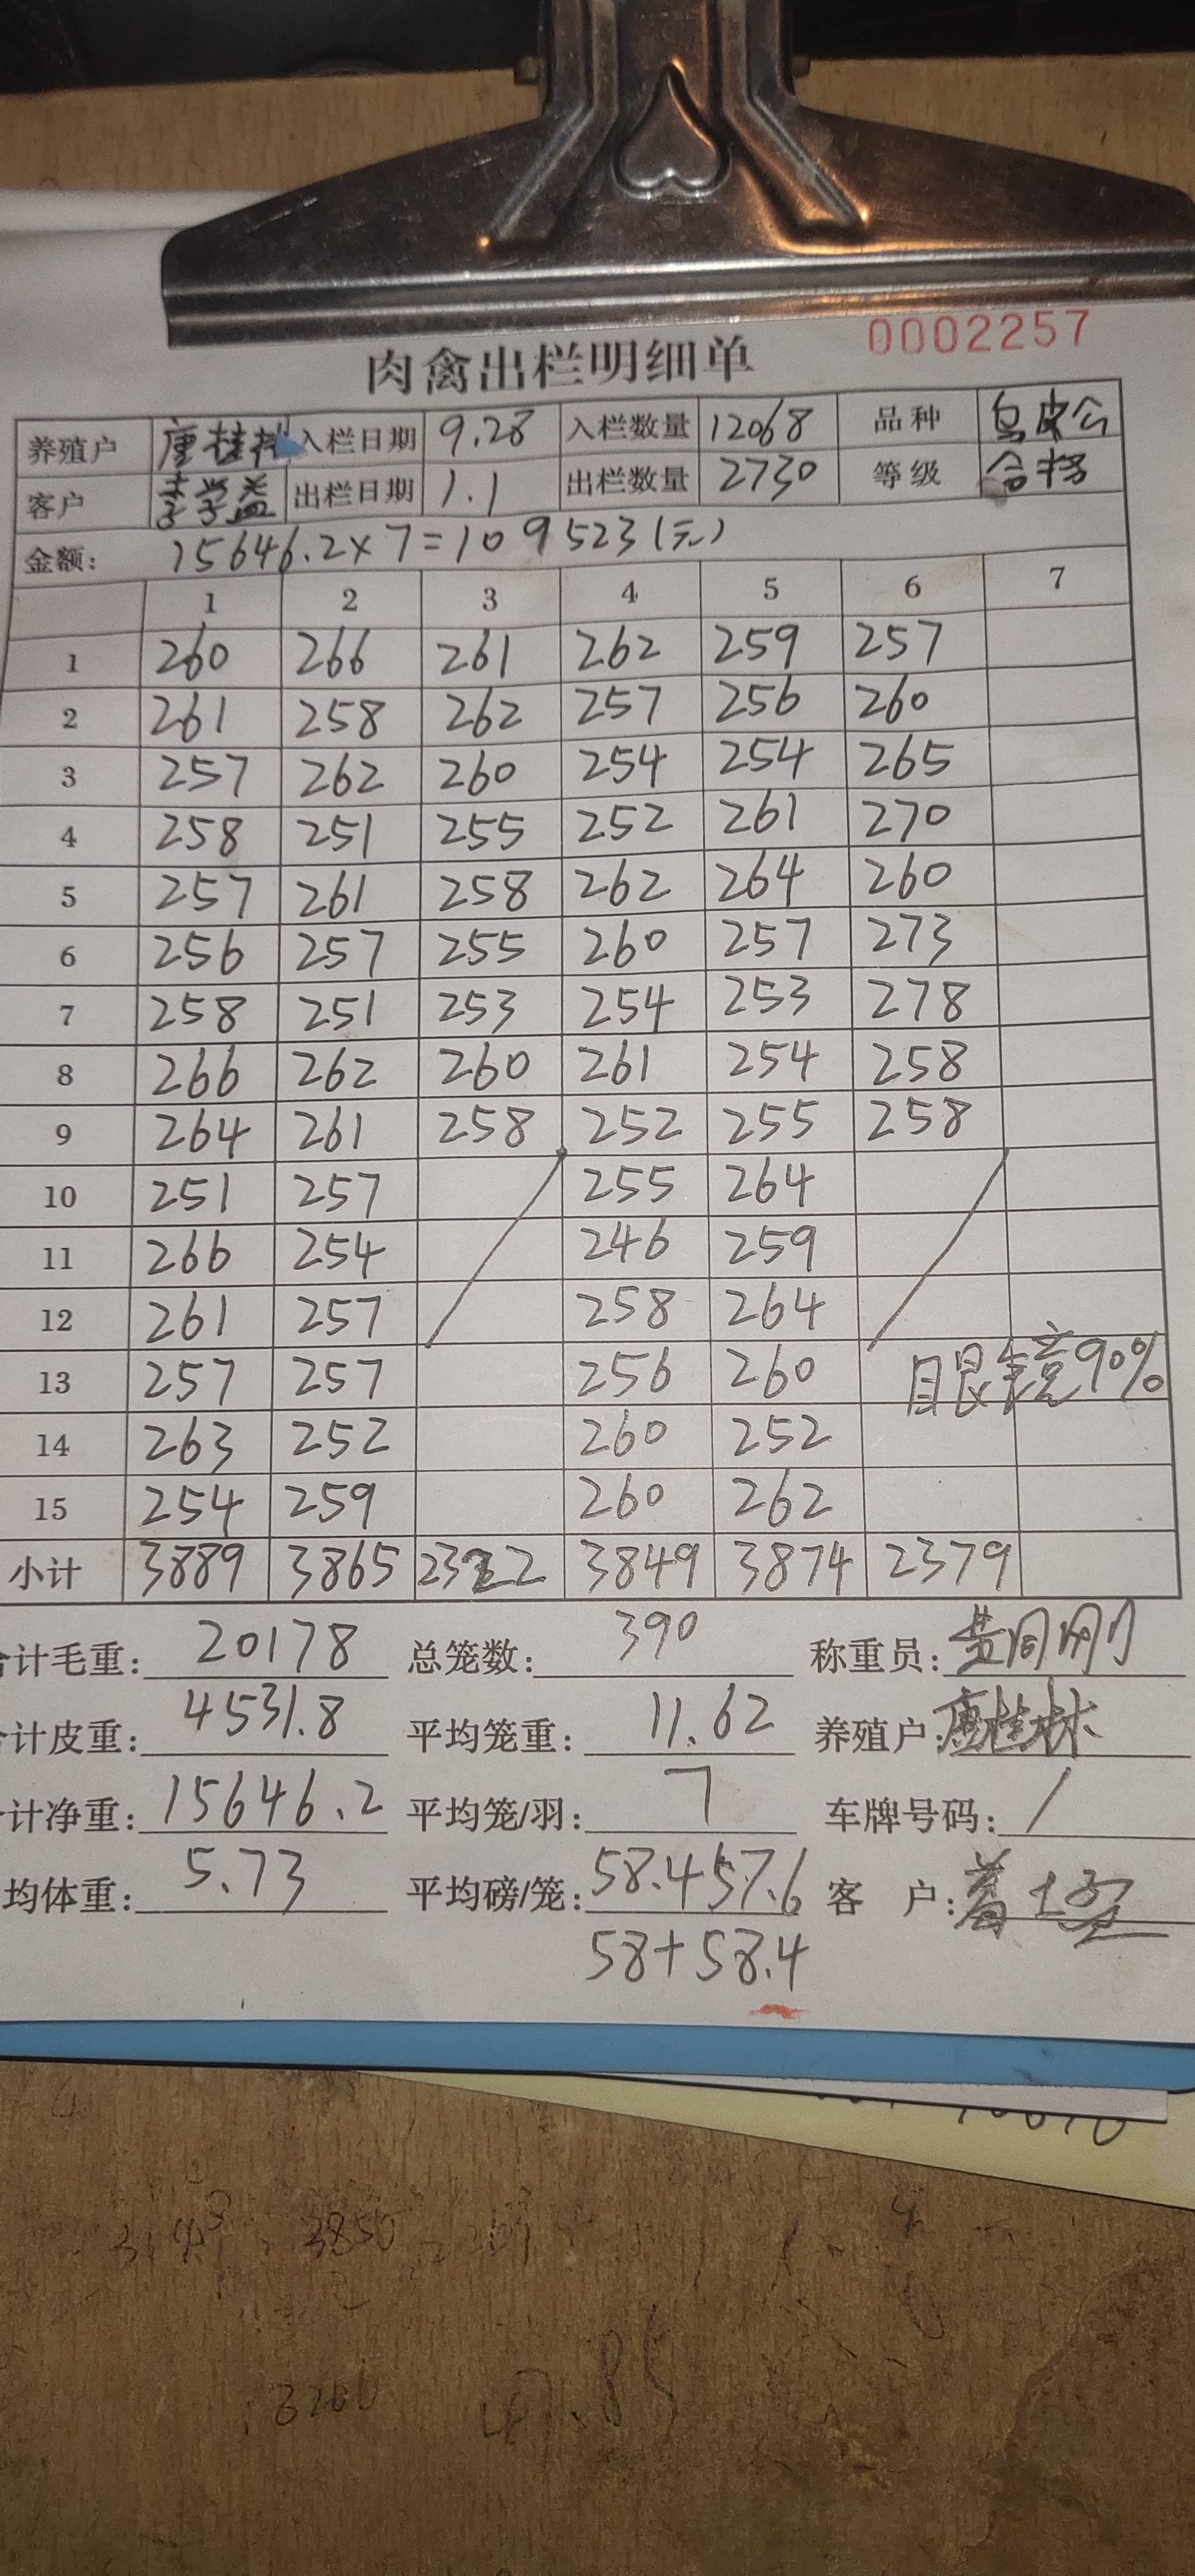 0002257
肉禽出栏明细单
养殖户 唐桂林 入栏日期 9.28 入栏数量 12068 品种 乌皮公
客户 李学益 出栏日期 1.1 出栏数量 2730 等级 合格
金额: 15646.2×7=109523(元)
1 2 3 4 5 6 7
1 260 266 261 262 259 257
2 261 258 262 257 256 260
3 257 262 260 254 254 265
4 258 251 255 252 261 270
5 257 261 258 262 264 260
6 256 257 255 260 257 273
7 258 251 253 254 253 278
8 266 262 260 261 254 258
9 264 261 258 252 255 258
10 251 257 255 264
11 266 254 246 259
12 261 257 258 264
13 257 257 256 260 目眼镜90%
14 263 252 260 252
15 254 259 260 262
小计 3889 3865 2322 3849 3874 2379
计毛重: 20178 总笼数: 390 称重员:
计皮重: 4531.8 平均笼重: 11.62 养殖户: 唐桂林
计净重: 15646.2 平均笼/羽: 7 车牌号码: /
均体重: 5.73 平均磅/笼: 58.4 57.6 客 户:
58+58.4